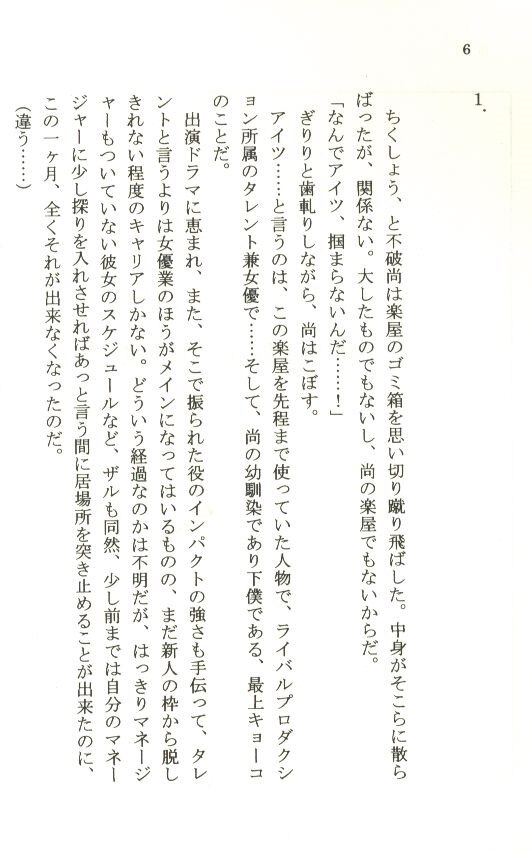 6
1.
ちくしょう、と不破尚は楽屋のゴミ箱を思い切り蹴り飛ばした。中身がそこらに散ら
ばったが、関係ない。大したものでもないし、尚の楽屋でもないからだ。
「なんでアイツ、掴まらないんだ……！」
ぎりりと歯軋りしながら、尚はこぼす。
アイツ……と言うのは、この楽屋を先程まで使っていた人物で、ライバルプロダクシ
ョン所属のタレント兼女優で……そして、尚の幼馴染であり下僕である、最上キョーコ
のことだ。
出演ドラマに恵まれ、また、そこで振られた役のインパクトの強さも手伝って、タレ
ントと言うよりは女優業のほうがメインになってはいるものの、まだ新人の枠から脱し
きれない程度のキャリアしかない。どういう経過なのかは不明だが、はっきりマネージ
ャーもついていない彼女のスケジュールなど、ザルも同然、少し前までは自分のマネー
ジャーに少し探りを入れさせればあっと言う間に居場所を突き止めることが出来たのに、
この一ヶ月、全くそれが出来なくなったのだ。
（違う……）